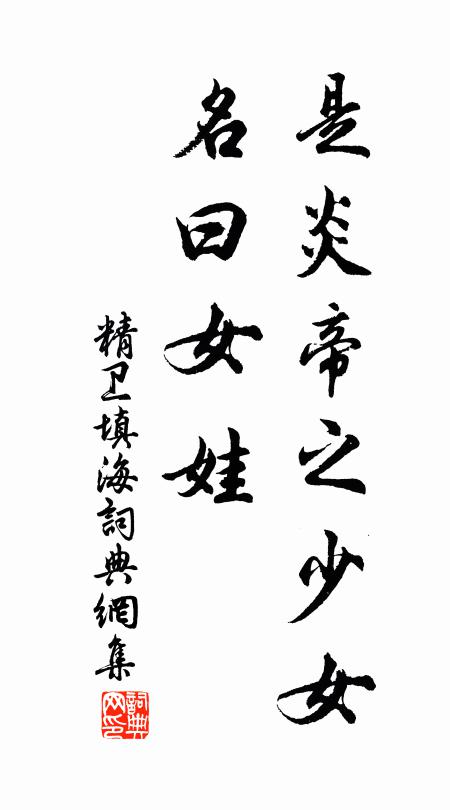 是炎帝之少女
名曰女娃
精卫填海詞典網集
詞典
网印